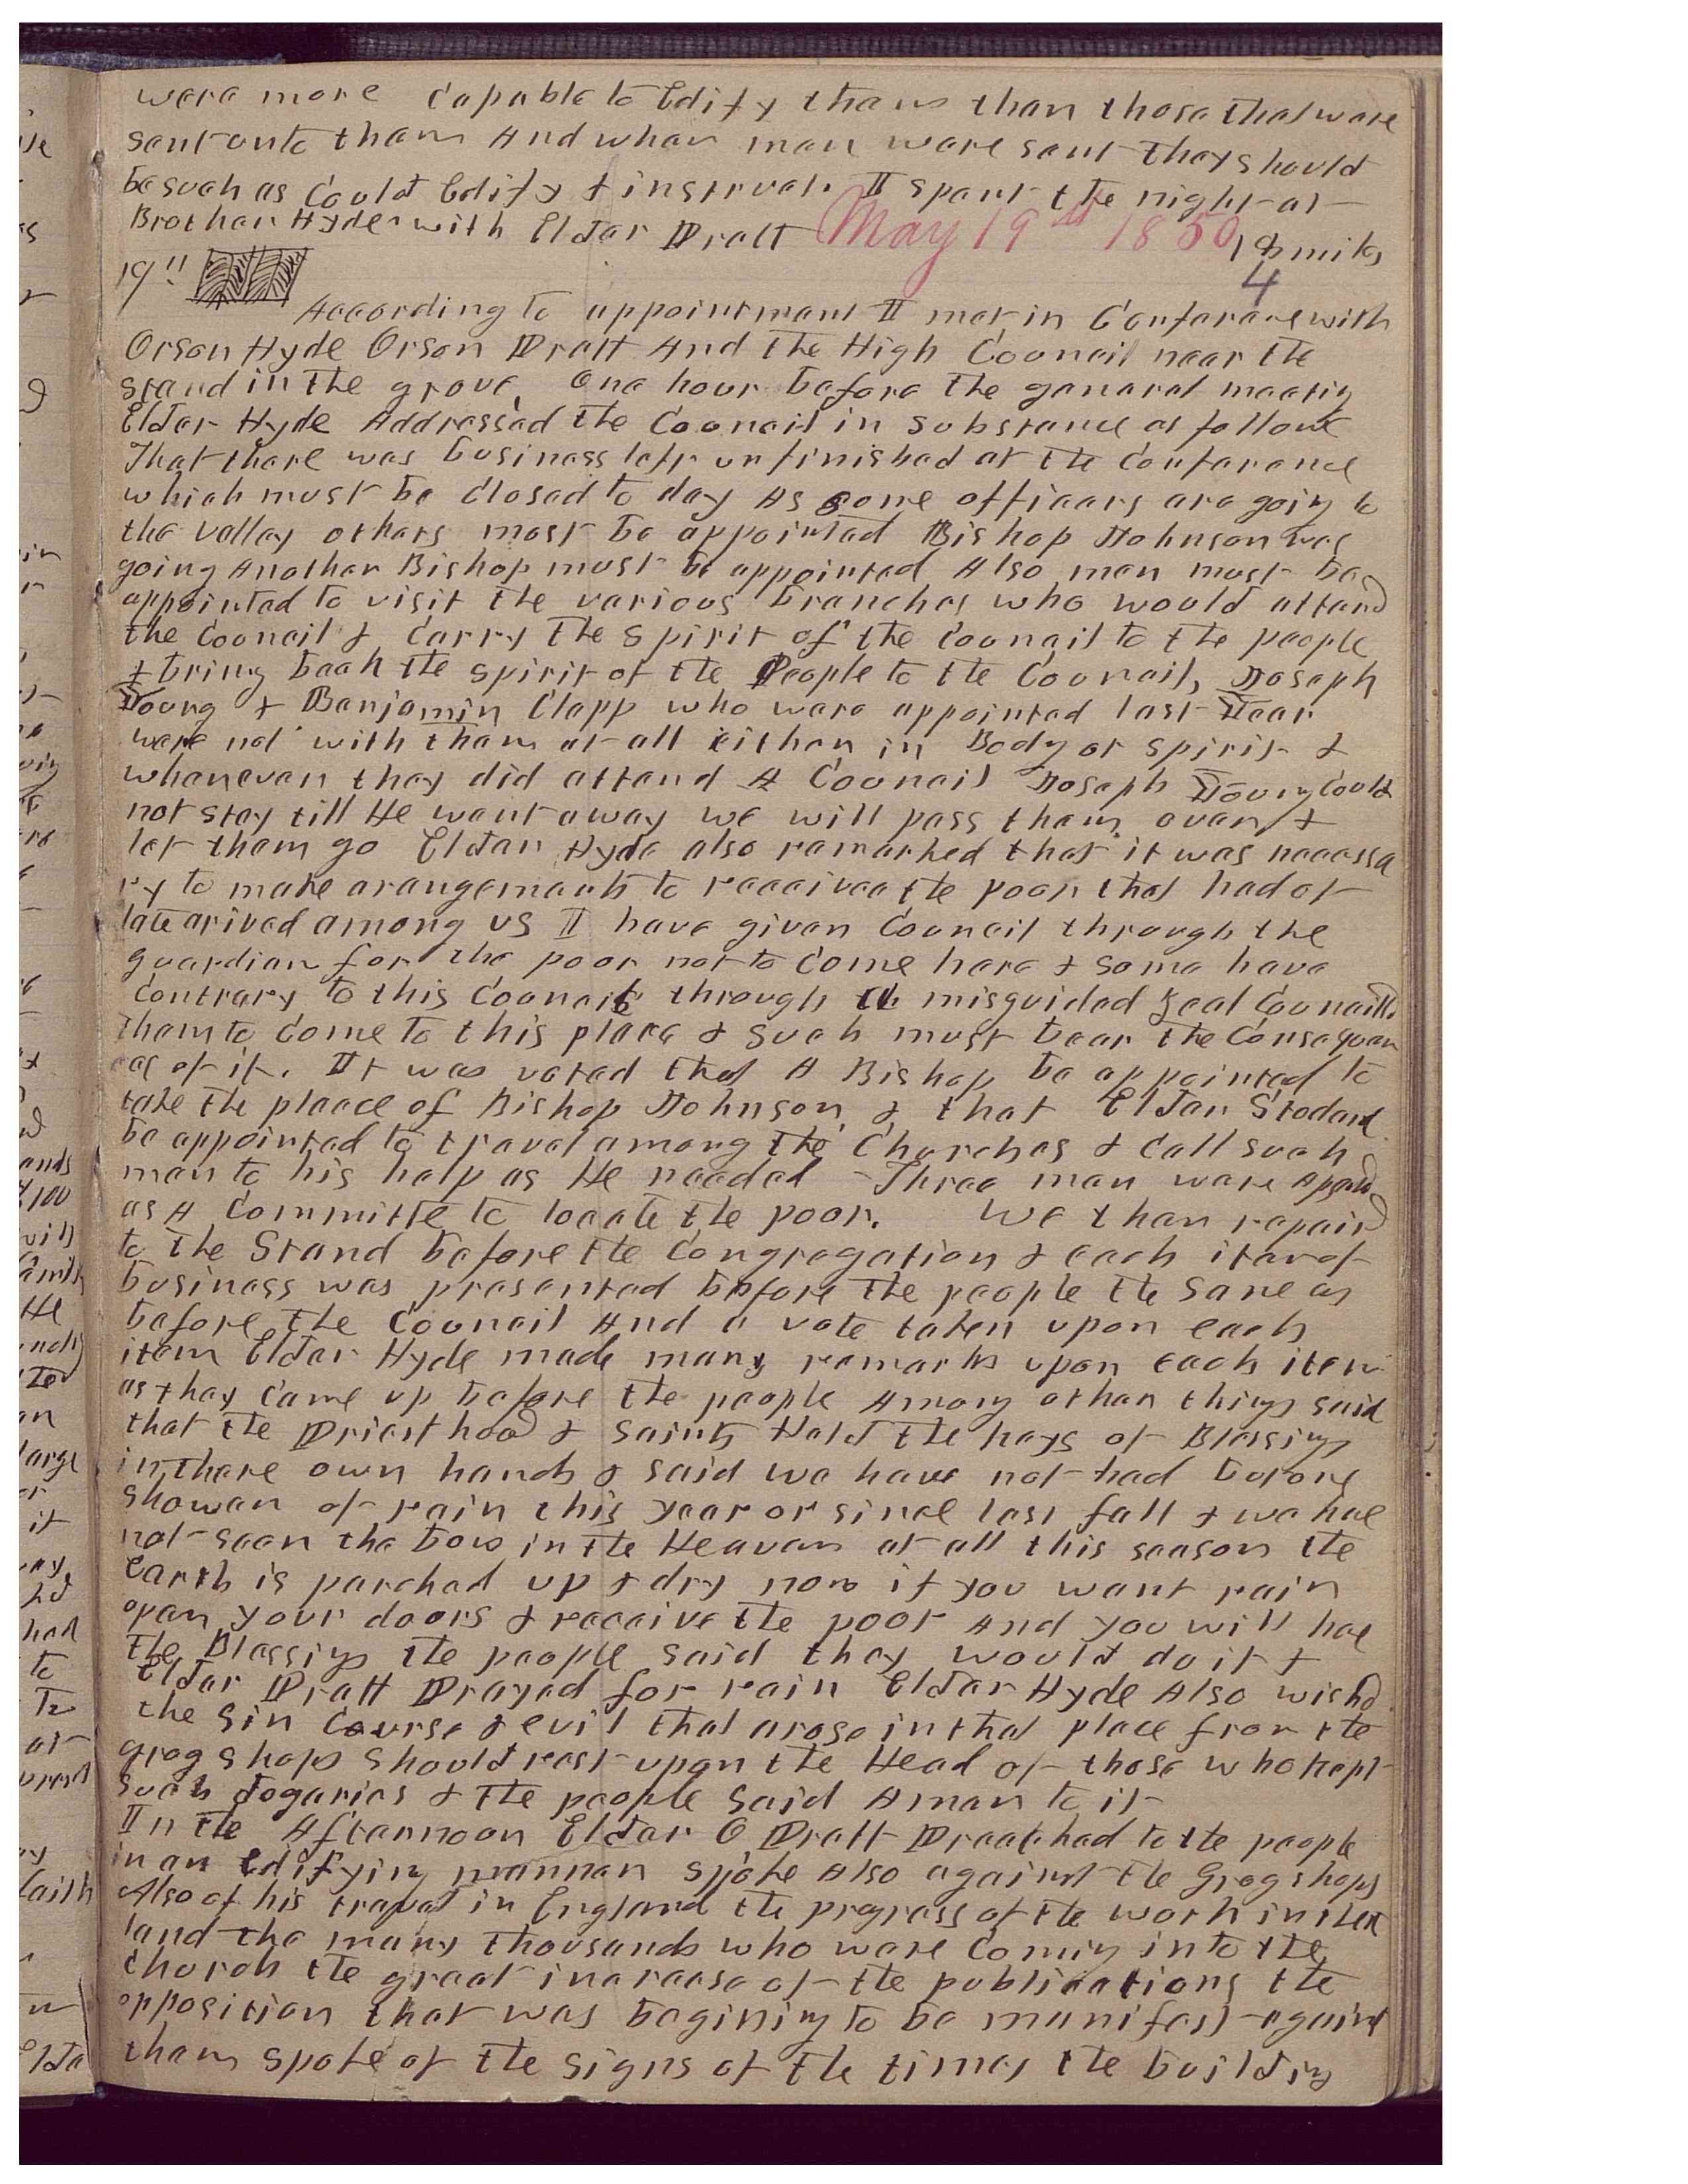 were more capable to Edify them than those that were
sent unto them And when men were sent they should
be such as Could Edify & instruct. I spent the night at
Brother Hyde with Elder Pratt May 19th 1850, 4 miles
4
19th
According to appointment I met in Conference with
Orson Hyde Orson Pratt And the High Council near the
stand in the grove, one hour before the general meeting
Elder Hyde Addressed the Council in substance as follows
That there was business left unfinished at the Conference
which must be closed to day As some officers are going to
the valley others most be appointed Bishop Johnson was
going Another Bishop must be appointed Also men must be
appointed to visit the various branches who would attend
the Council & carry the spirit of the Council to the people
& bring back the spirit of the People to the Council, Joseph
Young & Benjamin Clapp who were appointed last Year
were not with them at all either in Body or spirit &
whenever they did attend A Council Joseph Young Could
not stay till He went away we will pass them over &
let them go Elder Hyde also remarked that it was necessa
ry to make arangements to receivee the poor that had of
late arived among us I have given Council through the
guardian for the poor not to come here & some have
contrary to this Council through misguided zeal Councilld
them to come to this place & such must bear the Consequen
ces of it. It was voted that A Bishop be appointed to
take the plaace of Bishop Johnson, & that Elder Stodard
be appointed to travel among the Churches & call such
men to his help as He needed - Three men were appoind
as A committe to locate the poor. We then repaird
to the Stand before the Congregation & each item of
business was presented before the people the same as
before the Council And a vote taken upon each
item Elder Hyde made many remarks upon each item
as they came up before the people Among other things said
that the Priesthood & Saints Held the keys of Blessings
in there own hands & said we have not had but one
shower of rain this year or since last fall & we have
not seen the bow in the Heaven at all this season the
Earth is parched up & dry now if you want rain
open your doors & receive the poor And you will have
the Blessings the people said they would do it &
Elder Pratt Prayed for rain Elder Hyde Also wishd
the sin Course & evil that arose in that place from the
grog shops should rest upon the Head of those who kept
such dogaries & the people said Amen to it
In the Afternoon Elder O Pratt Preached to the people
in an Edifying mannen spoke Also against the Grog shops
Also of his travel in England the progress of the work in that
land the many thousands who were coming into the
church the great increase of the publications the
opposition that was begining to be manifest against
them spoke of the signs of the times the building